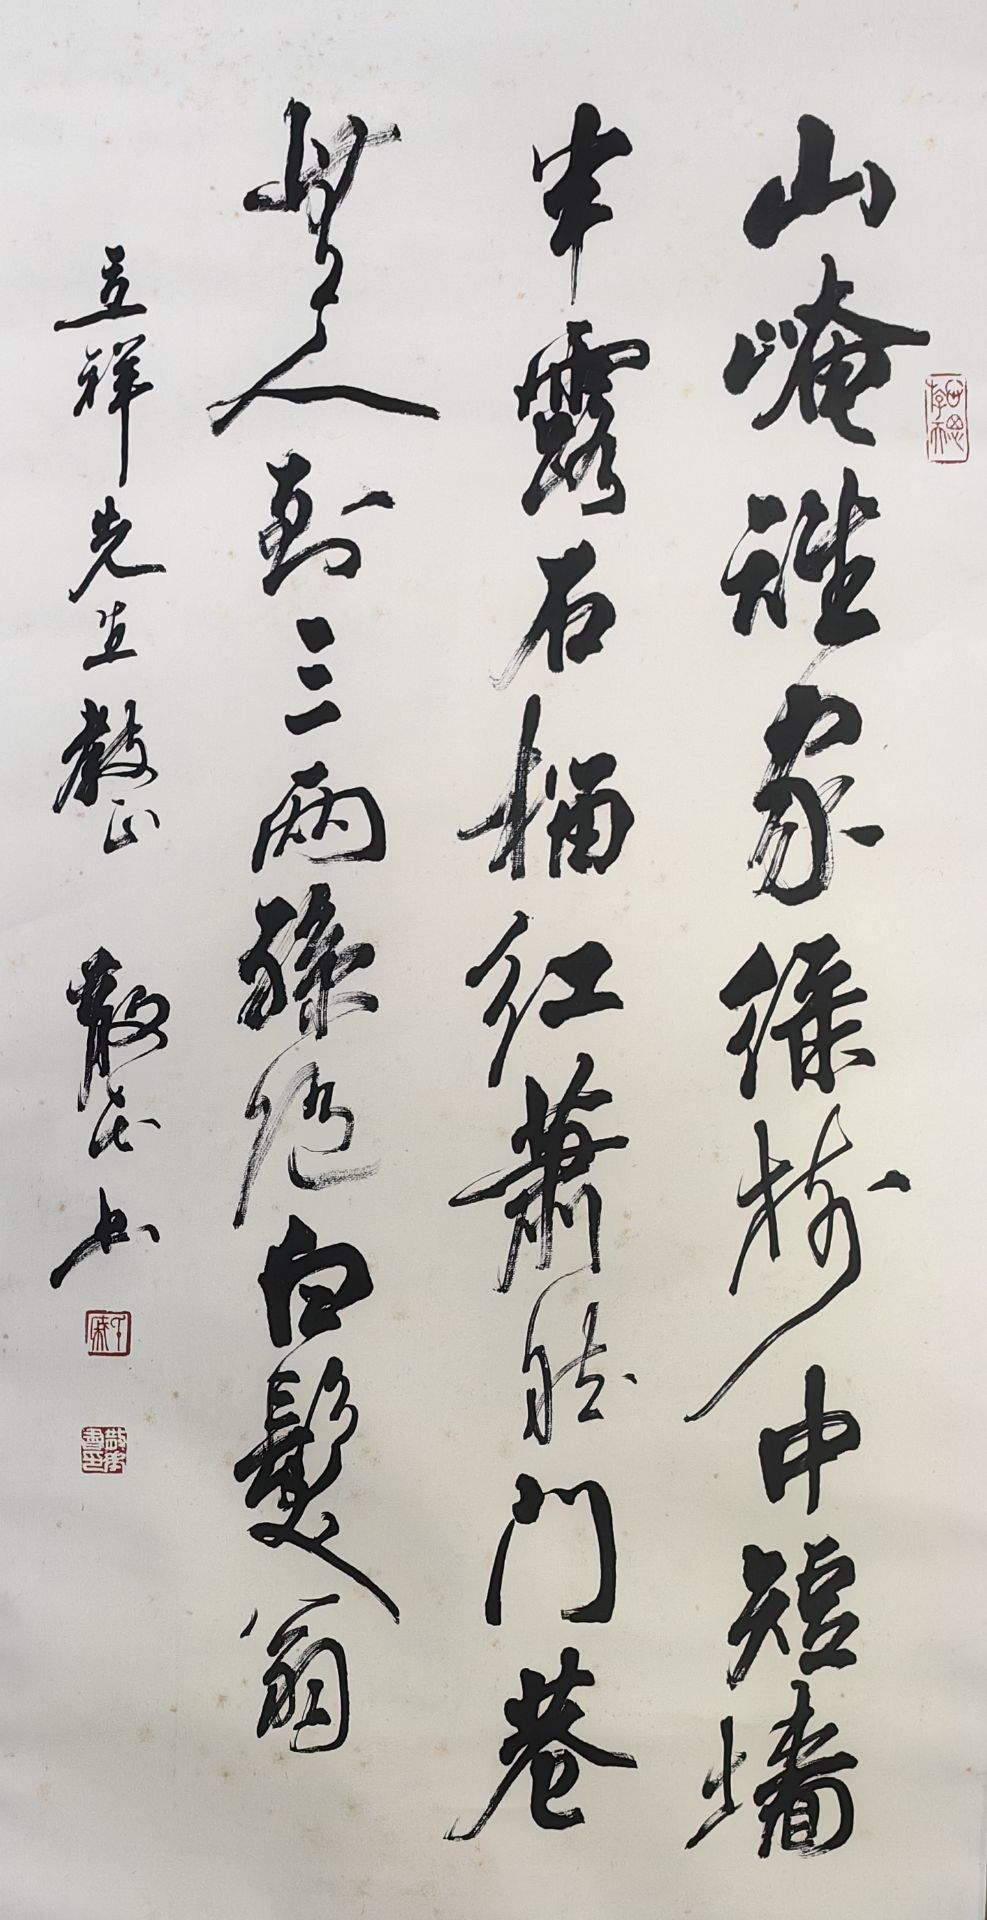 山崦谁家绿树中短墙
半露石榴红萧然门巷
无人到三两孙随白发翁
立祥先生教正
散氏书